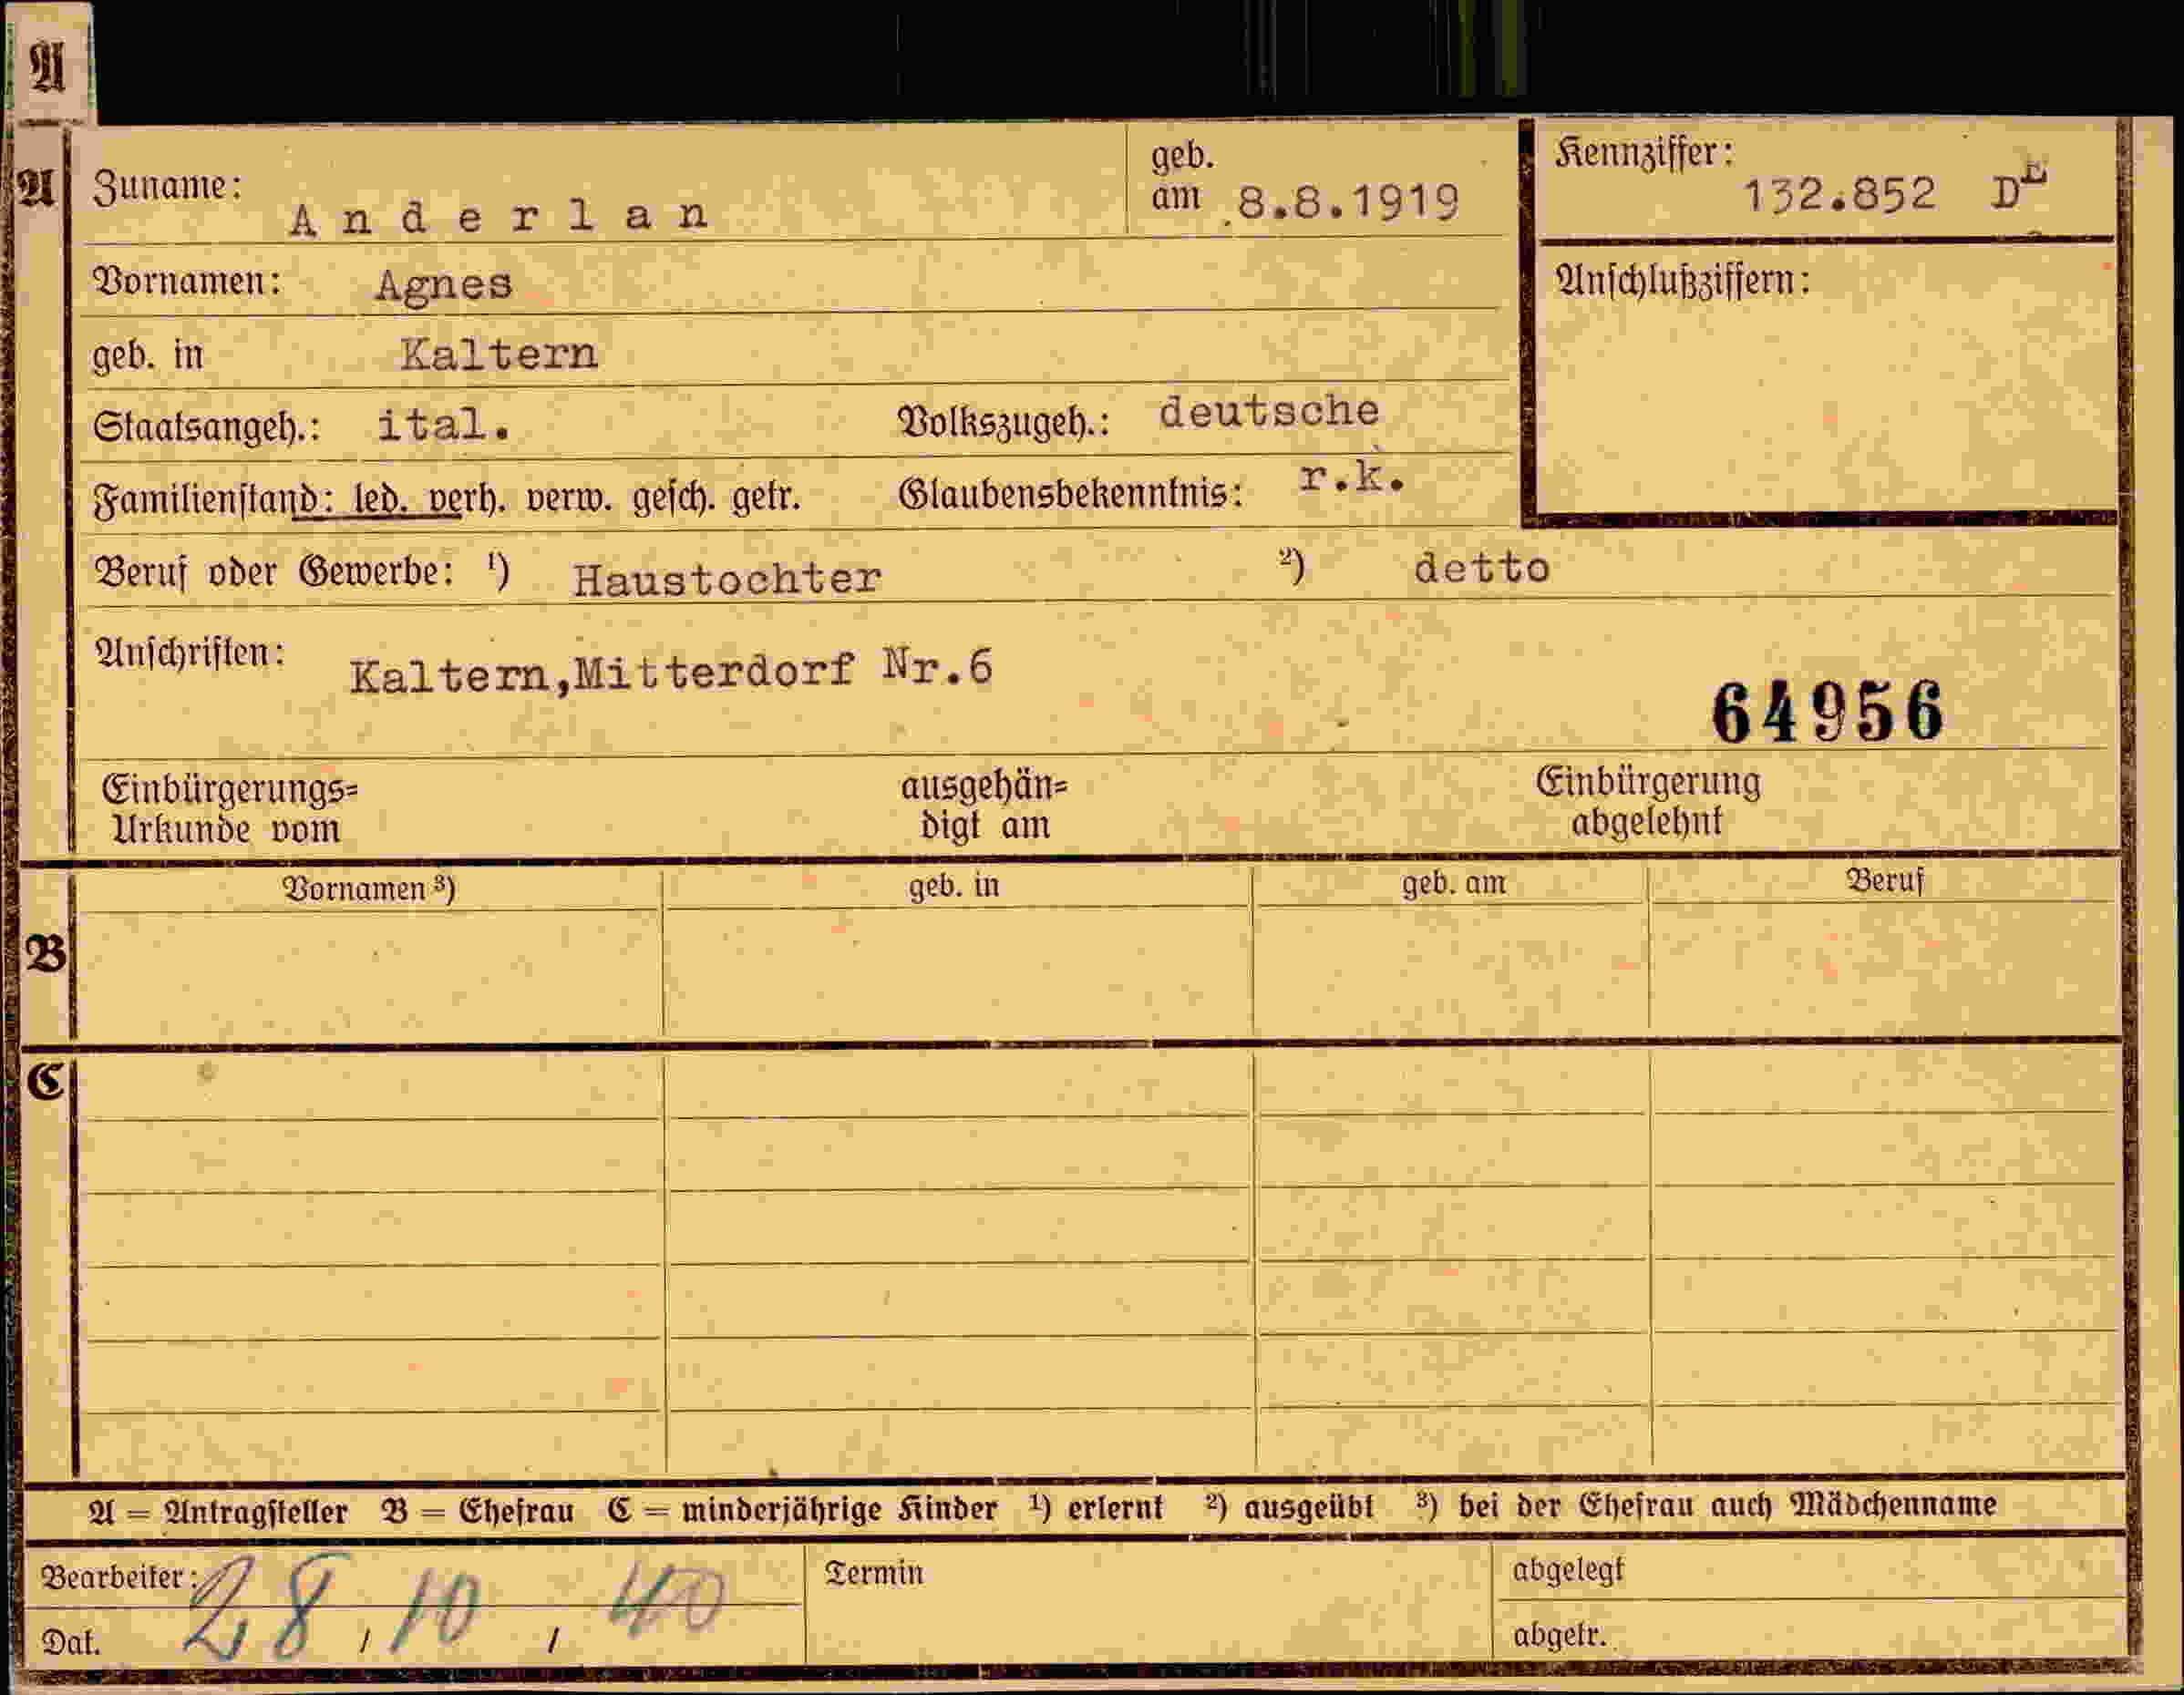 A
A
Zuname: Anderlan geb. am 8.8.1919
Kennziffer: 132.852 DE
Vornamen: Agnes
Anschlußziffern:
geb. in Kaltern
Staatsangeh.: ital. Volkszugeh.: deutsche
Familienstand: led. verh. verw. gesch. getr. Glaubensbekenntnis: r.k.
Beruf oder Gewerbe: 1) Haustochter 2) detto
Anschriften: Kaltern,Mitterdorf Nr.6
64956
Einbürgerungs= ausgehän= Einbürgerung
Urkunde vom digt am abgelehnt
Vornamen 3) geb. in geb. am Beruf
B
C
A = Antragsteller B = Ehefrau C = minderjährige Kinder 1) erlernt 2) ausgeübt 3) bei der Ehefrau auch Mädchenname
Bearbeiter: Termin abgelegt
Dat. 28/10/40 abgetr.